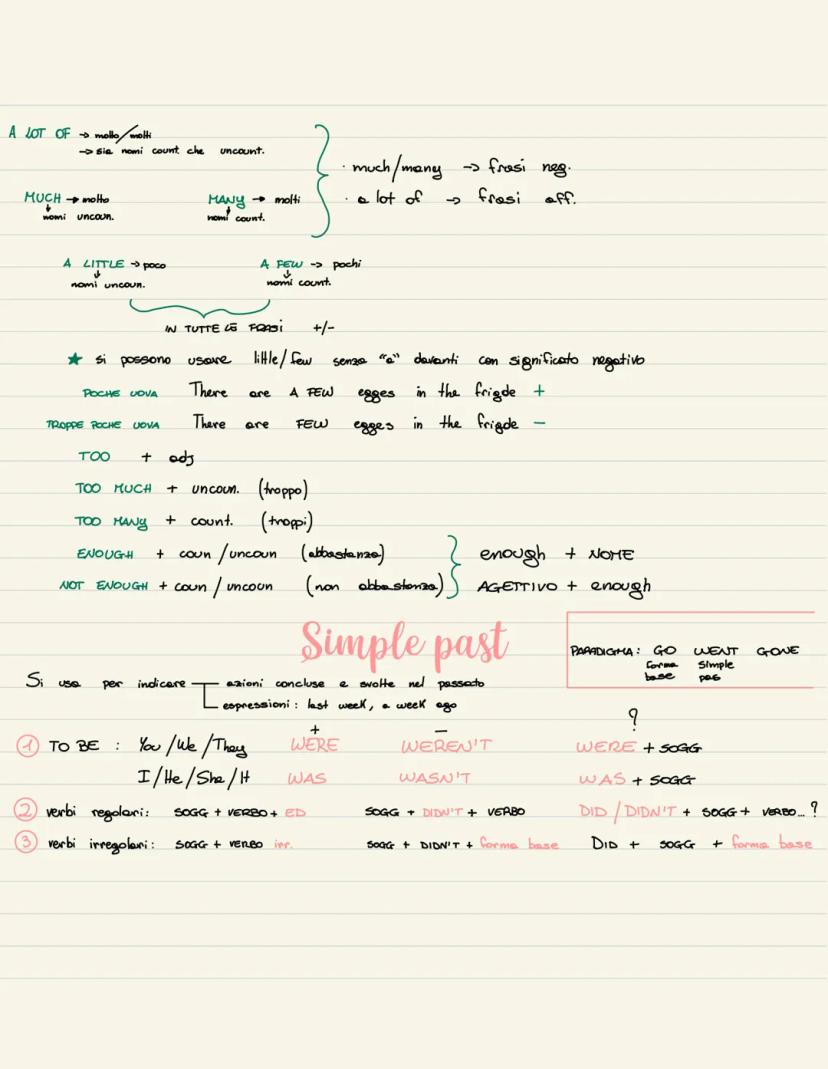 A LOT OF → molto/molti
→ sia nomi count che uncount.
· much/many → frasi neg.
MUCH → molto MANY → molti · a lot of → frasi aff.
nomi uncoun. nomi count.
A LITTLE → poco A FEW → pochi
nomi uncoun. nomi count.
IN TUTTE LE FRASI +/-
★ si possono usare little/few senza "a" davanti con significato negativo
POCHE UOVA There are A FEW egges in the frigde +
TROPPE POCHE UOVA There are FEW egges in the frigde -
TOO + adj
TOO MUCH + uncoun. (troppo)
TOO MANY + count. (troppi)
ENOUGH + coun/uncoun (abbastanza) enough + NOME
NOT ENOUGH + coun/uncoun (non abbastanza) AGETTIVO + enough
Simple past
PARADIGMA: GO WENT GONE
forma base simple pas
Si usa per indicare azioni concluse e svolte nel passato
espressioni: last week, a week ago
+ - ?
1 TO BE : You/We/They WERE WEREN'T WERE + SOGG
I/He/She/It WAS WASN'T WAS + SOGG
2 verbi regolari: SOGG + VERBO + ED SOGG + DIDN'T + VERBO DID/DIDN'T + SOGG + VERBO...?
3 verbi irregolari: SOGG + VERBO irr. SOGG + DIDN'T + forma base DID + SOGG + forma base